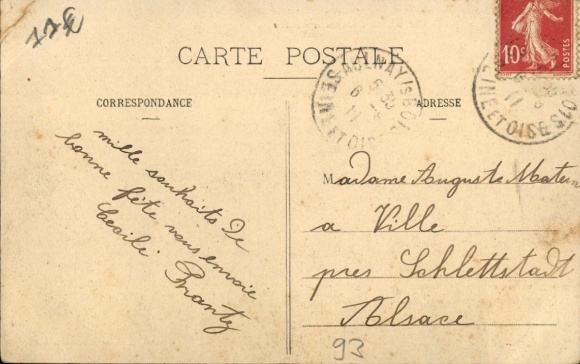 CARTE POSTALE
CORRESPONDANCE
ADRESSE
10c
POSTES
AULNAY
SEINE ET OISE
SEINE ET OISE
mille souhaits de
bonne fête vous envoie
Cecile Prantz
Madame Auguste Matern
a Ville
pres Schlettstadt
Alsace
93